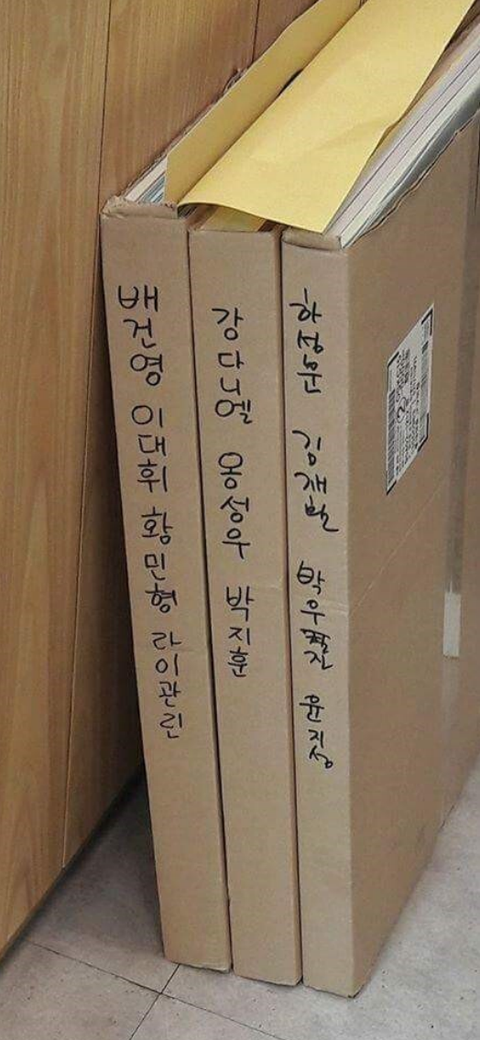 배건영 이대휘 황민형 라이관린
강다니엘 옹성우 박지훈
하성운 김재환 박우진 윤지성